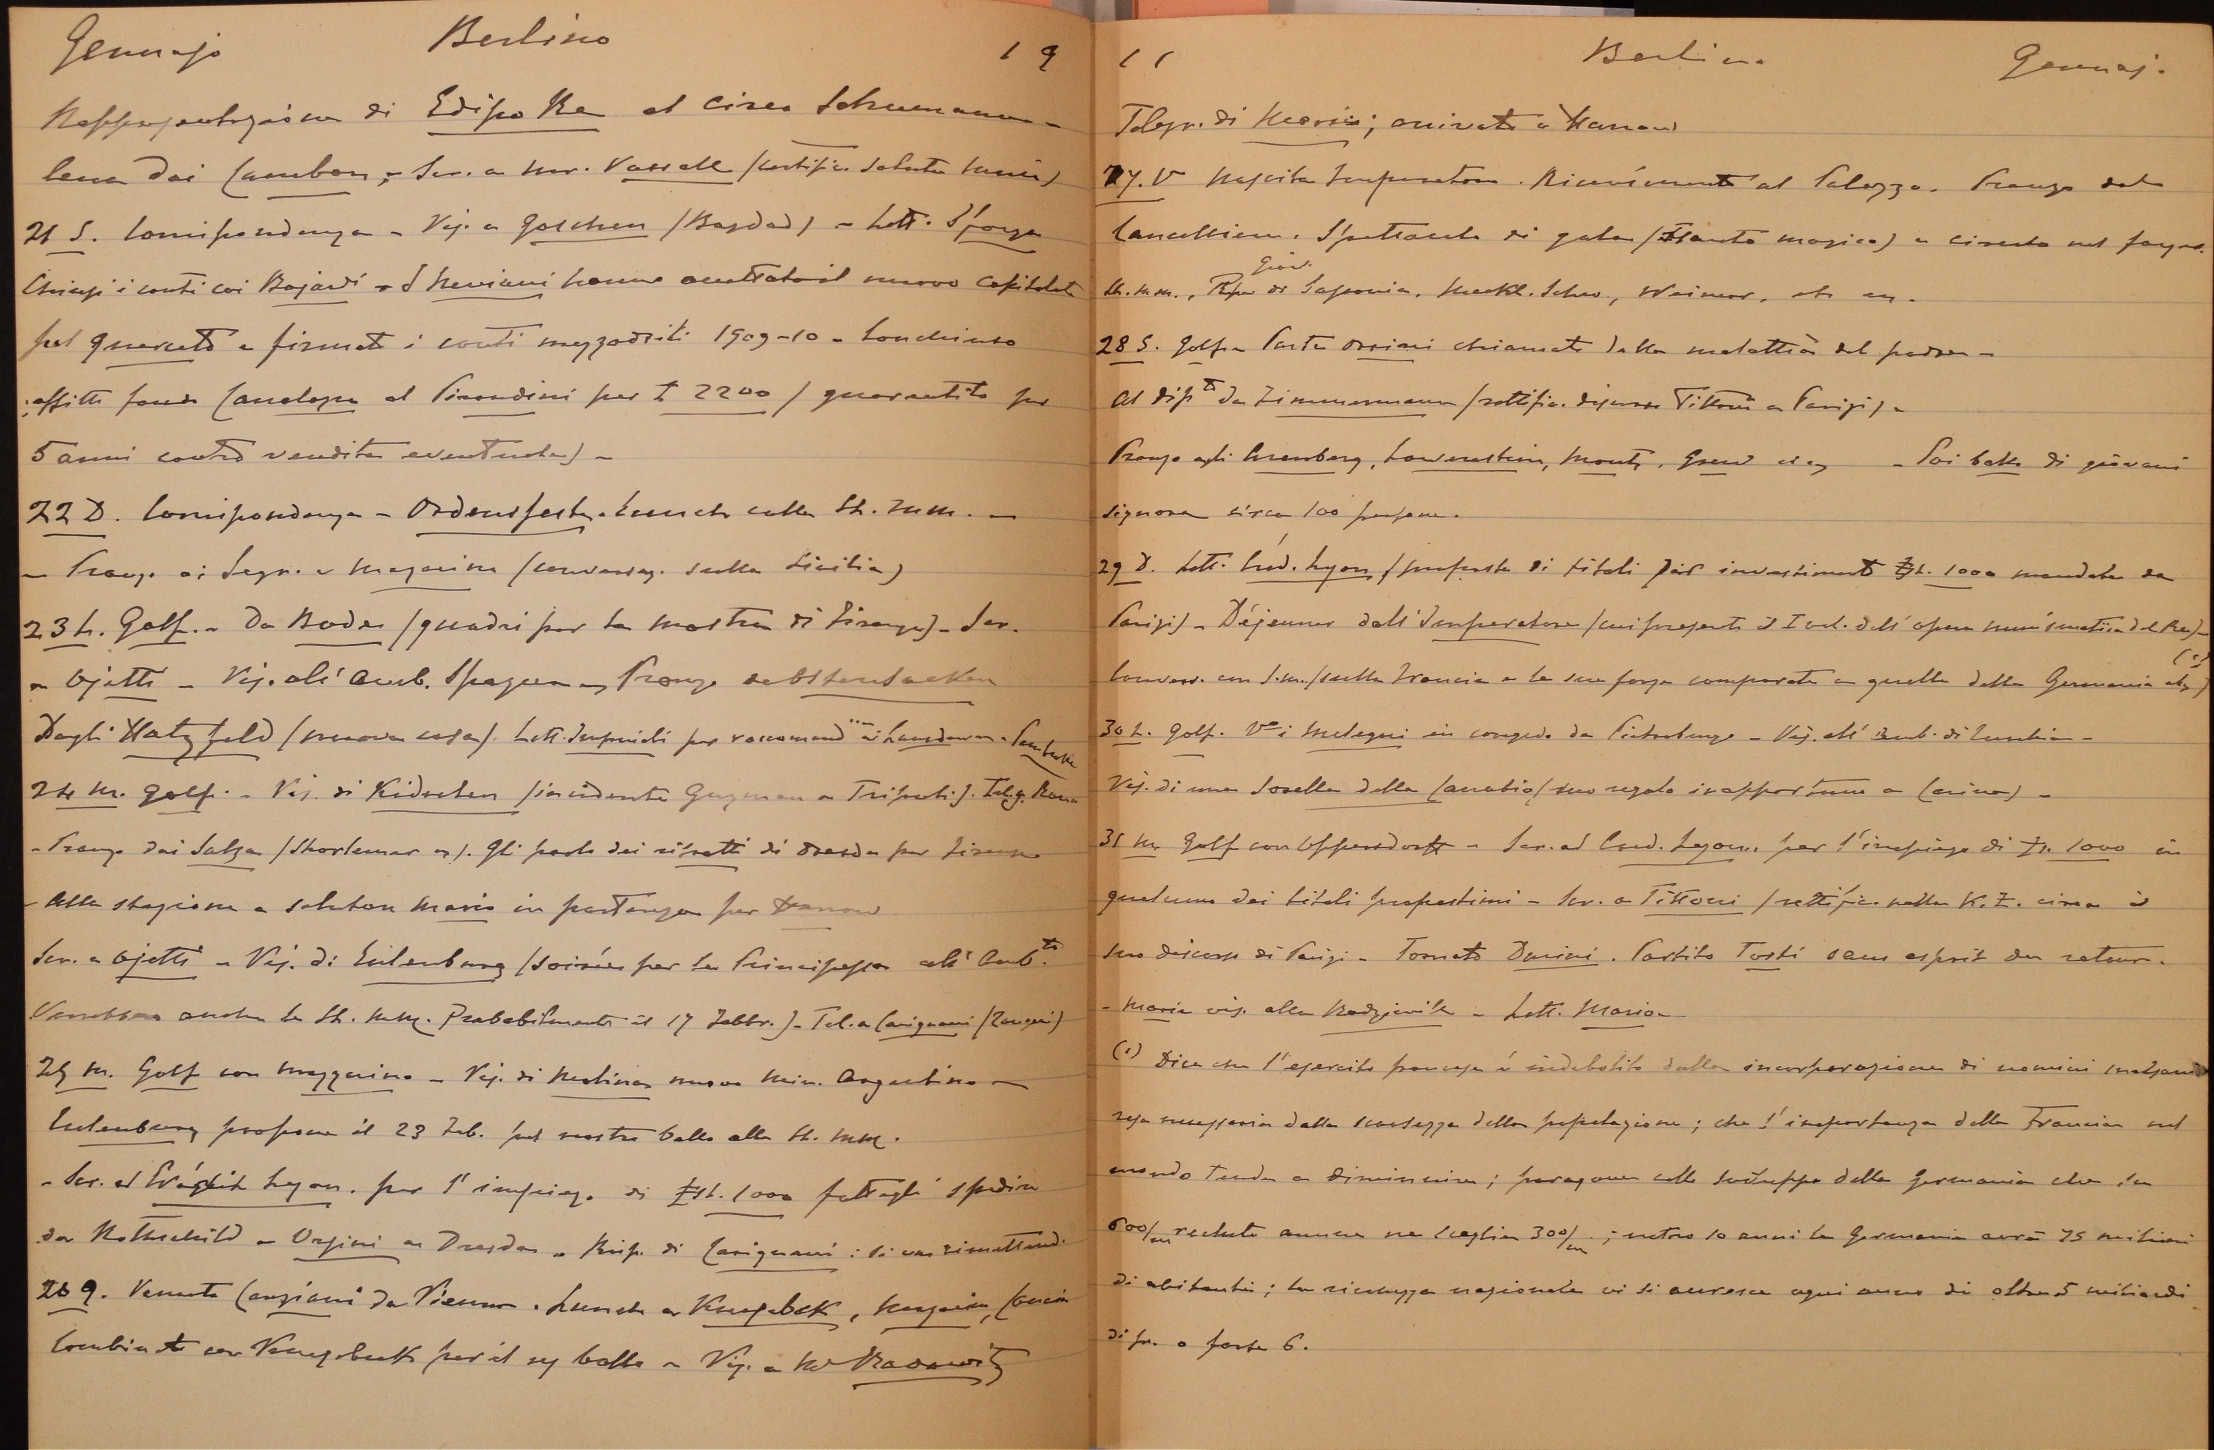 Gennajo Berlino 19
Rappresentazione di Edipo Re al Circo Schumann –
Cena dai Cambon – Scr. a Mr. Vassall (certific. salute
21 S. Corrispondenza – Vis. a Goschen (Bagdad) – Lett. Sforza
Chiusi i conti coi Bajardi – I Neviani hanno accettato il nuovo capitolato
pel Querceto e firmato i conti mezzadrili 1909-10 – Conchiuso
affitto fondo Canalopa al Pirondini per £ 2200 (garantito per
5 anni contro vendita eventuale) –
22 D. Corrispondenza – Ordensfest. Lunch colle LL. MM. –
– Pranzo ai Segr. e Mazarino (conversaz. sulla Sicilia)
23 L. Golf. – Da Bode (quadri per la mostra di Firenze) – Scr.
a Ojetti – Vis. all' Amb. Spagna – Pranzo
Dagli Hatzfeld (nuova casa). Lett. per raccomand
24 M. Golf. – Vis. di Kiderlen (incidente Guzman a Tripoli). Teleg. Roma
– Pranzo dai Salza (Schorlemer ). Gli parlo dei ritratti di Dresda per Firenze
– Alla stazione a salutare Mario in partenza per Hanau
Scr. a Ojetti – Vis. di Eulenburg (soirée per la Principessa all' Amb.ta
Verrebbero anche le LL. MM. Probabilmente il 17 Febbr.) – Tel. a Carignani
25 M. Golf con Mazzarino – Vis. di Molina nuovo Min. Argentino –
Eulenburg propone il 23 Feb. pel nostro ballo alle LL. MM.
– Scr. al Crédit Lyon. per l'impiego di £st. 1000 fattegli spedire
da Rothschild – Orsini a Dresda – Risp. di Carignani : si va rimettendo
26 G. Venuto Canziani da Vienna. Lunch a Knesebeck,
Combinato con Knesebeck per il ns ballo – Vis. a Md Radowitz
11 Berlino Gennaj.
Telegr. di Mario; arrivato a Hanau
27. V Nascita Imperatore. Ricevimento al Palazzo. Pranzo dal
Cancelliere. Spettacolo di gala (Flauto magico) e circolo nel foyer.
LL. MM., Re Giov. di Sassonia, Meckl. Schw., Weimar, etc etc.
28 S. Golf – Parte Orsini chiamato dalla malattia del padre –
Al Dip.to da Zimmermann (rettific. discorso Tittoni a Parigi) –
Pranzo agli Arenberg, Lowenstein, Monts, Grew etc – Poi ballo di giovani
signore circa 100 persone.
29 D. Lett. Créd. Lyon. (proposta di titoli per investimento £st. 1000 mandate da
Parigi) – Déjeuner dall'Imperatore (cui presento il I vol. dell'opera numismatica del Re) –
Convers. con S.M. (sulla Francia e la sua forza comparata a quella della Germania etc) (1)
30 L. Golf. V.o i Melegari in congedo da Pietroburgo – Vis. all'Amb. di Turchia –
Vis. di una sorella della (suo regalo inopportuno a –
31 M. Golf con Oppersdorff – Scr. al Créd. Lyon. per l'impiego di £st. 1000 in
qualcuno dei titoli propostimi – Scr. a Tittoni (rettific. nella K. Z. circa il
suo discorso di Parigi – Tornato Durini. Partito Tosti sans esprit de retour.
– Maria vis. alla Radziwill – Lett. Mario –
(1) Dice che l'esercito francese è indebolito dalla incorporazione di uomini malsani
resa necessaria dalla scarsezza della popolazione; che l'importanza della Francia nel
mondo tende a diminuire; paragone collo sviluppo della Germania che su
600/m reclute annue ne sceglie 300/m; entro 10 anni la Germania avrà 75 milioni
di abitanti; la ricchezza nazionale vi si accresce ogni anno di oltre 5 miliardi
di fr. o forse 6.